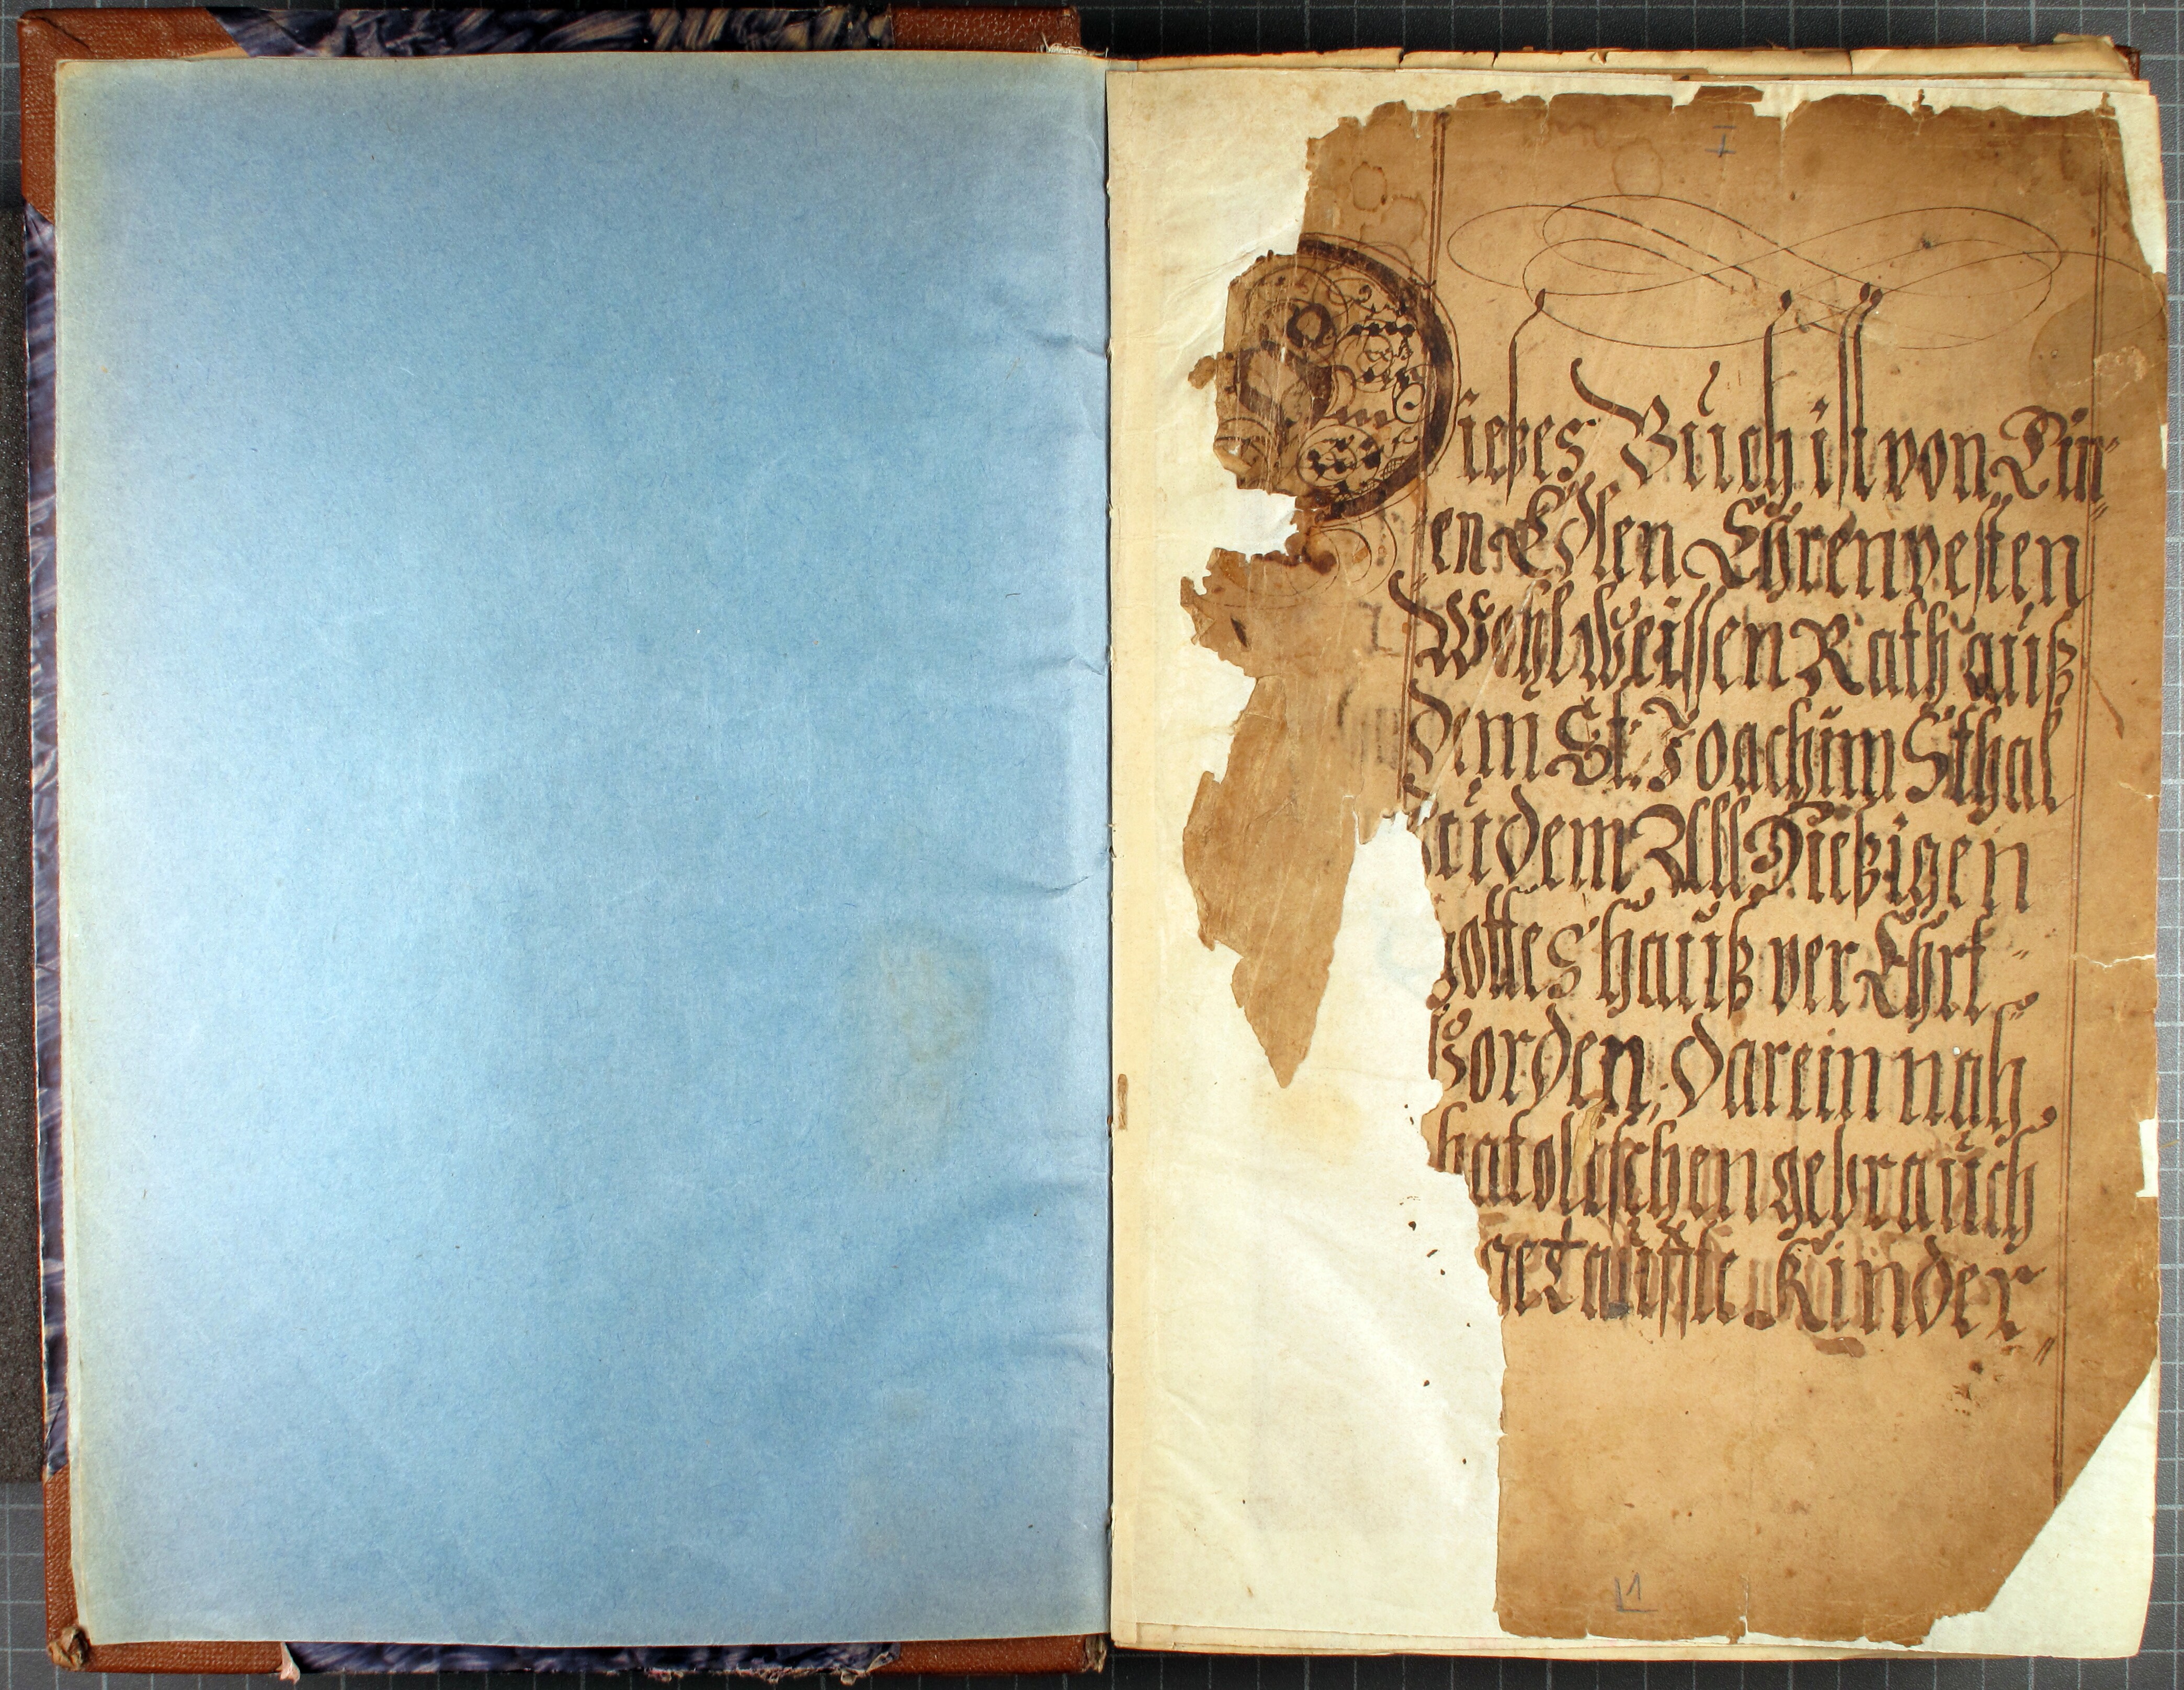 I
Dießes Buch ist von Ein-
en Edlen Ehrenvesten
WohlWeissen Rath auß
dem St: Joachim Sthal
zu dem All Hießigen
gottes hauß ver Ehrt
Worden, darein nah
katolischen gebrauch
getauffte Kinder